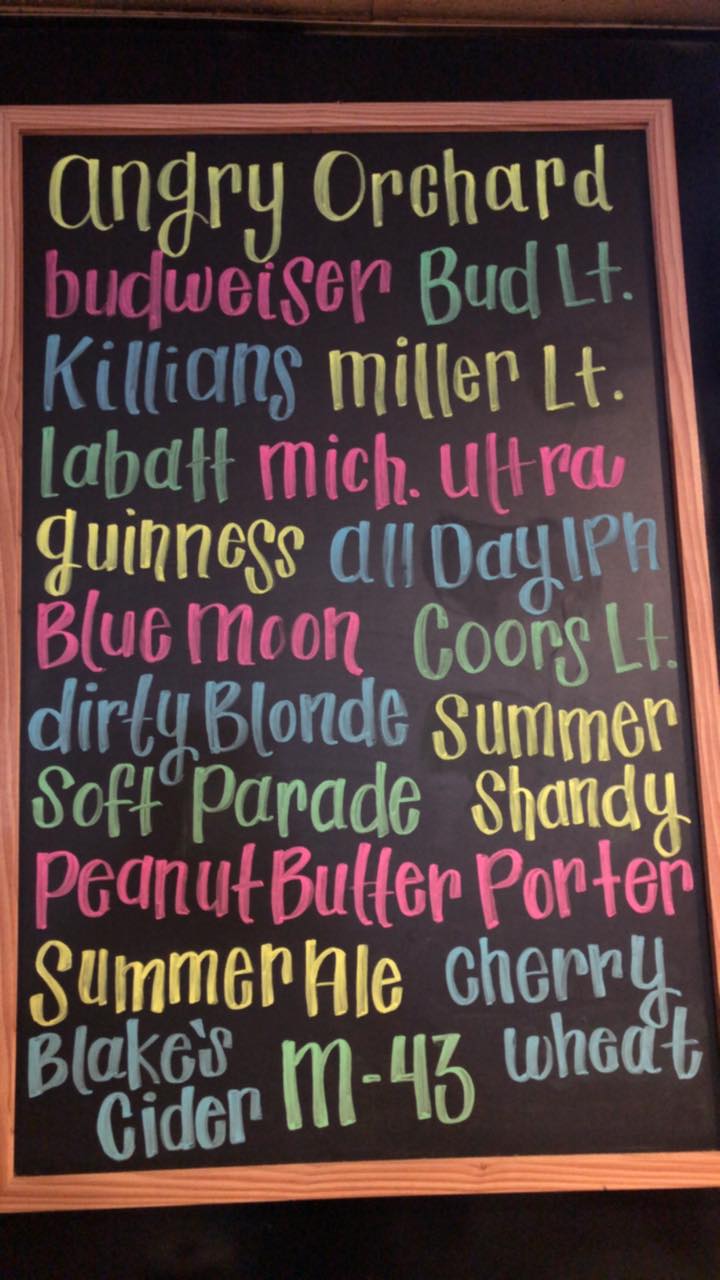 angry Orchard
budweiser Bud Lt.
Killians miller Lt.
labatt mich. ultra
guinness all Day IPA
Blue moon Coors Lt.
dirty Blonde Summer
Soft Parade Shandy
Peanut Butter Porter
Summer Ale cherry
Blake's M-43 wheat
Cider